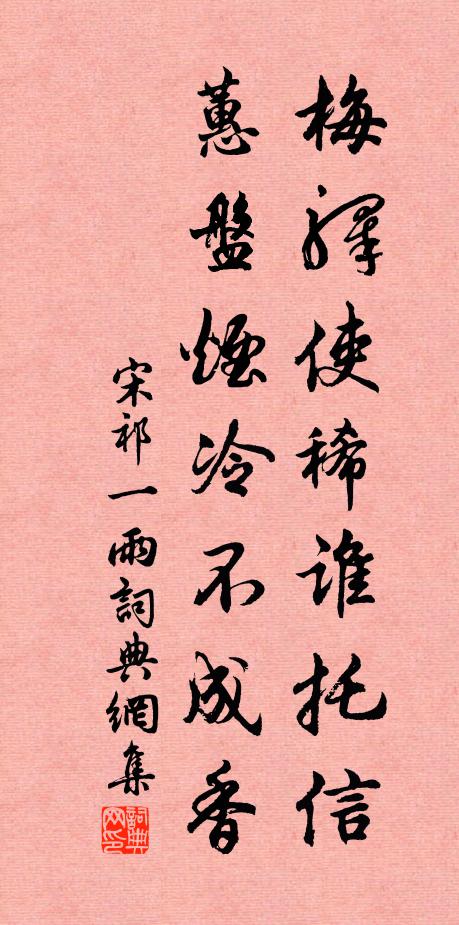 梅驛使稀誰托信
蕙盤煙冷不成香
宋祁一兩詞典網集
詞典网印